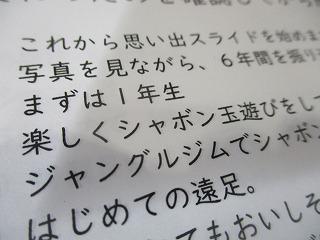 これから思い出スライドを始めま
写真を見ながら、6年間を振り
まずは1年生
楽しくシャボン玉遊びをして
ジャングルジムでシャボン
はじめての遠足。
てもおいしそ